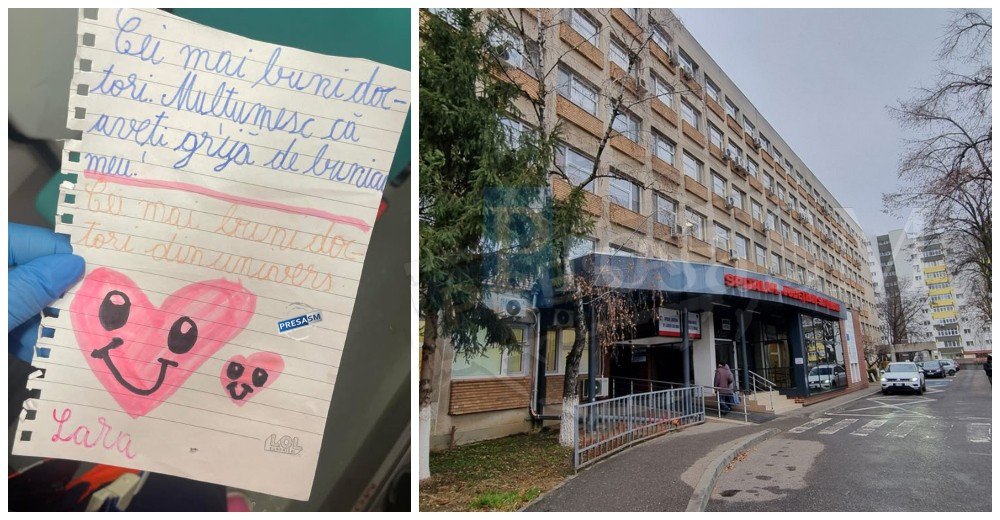 Cei mai buni doc-
tori. Mulțumesc că
aveți grijă de bunicu
meu!
Cei mai buni doc-
tori din univers
PRESASM
Lara
LOL
SPITALUL JUDEȚEAN